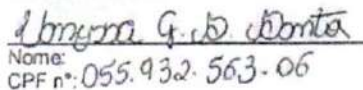 G. D.
Nome:
CPF nº: 055.932.563-06